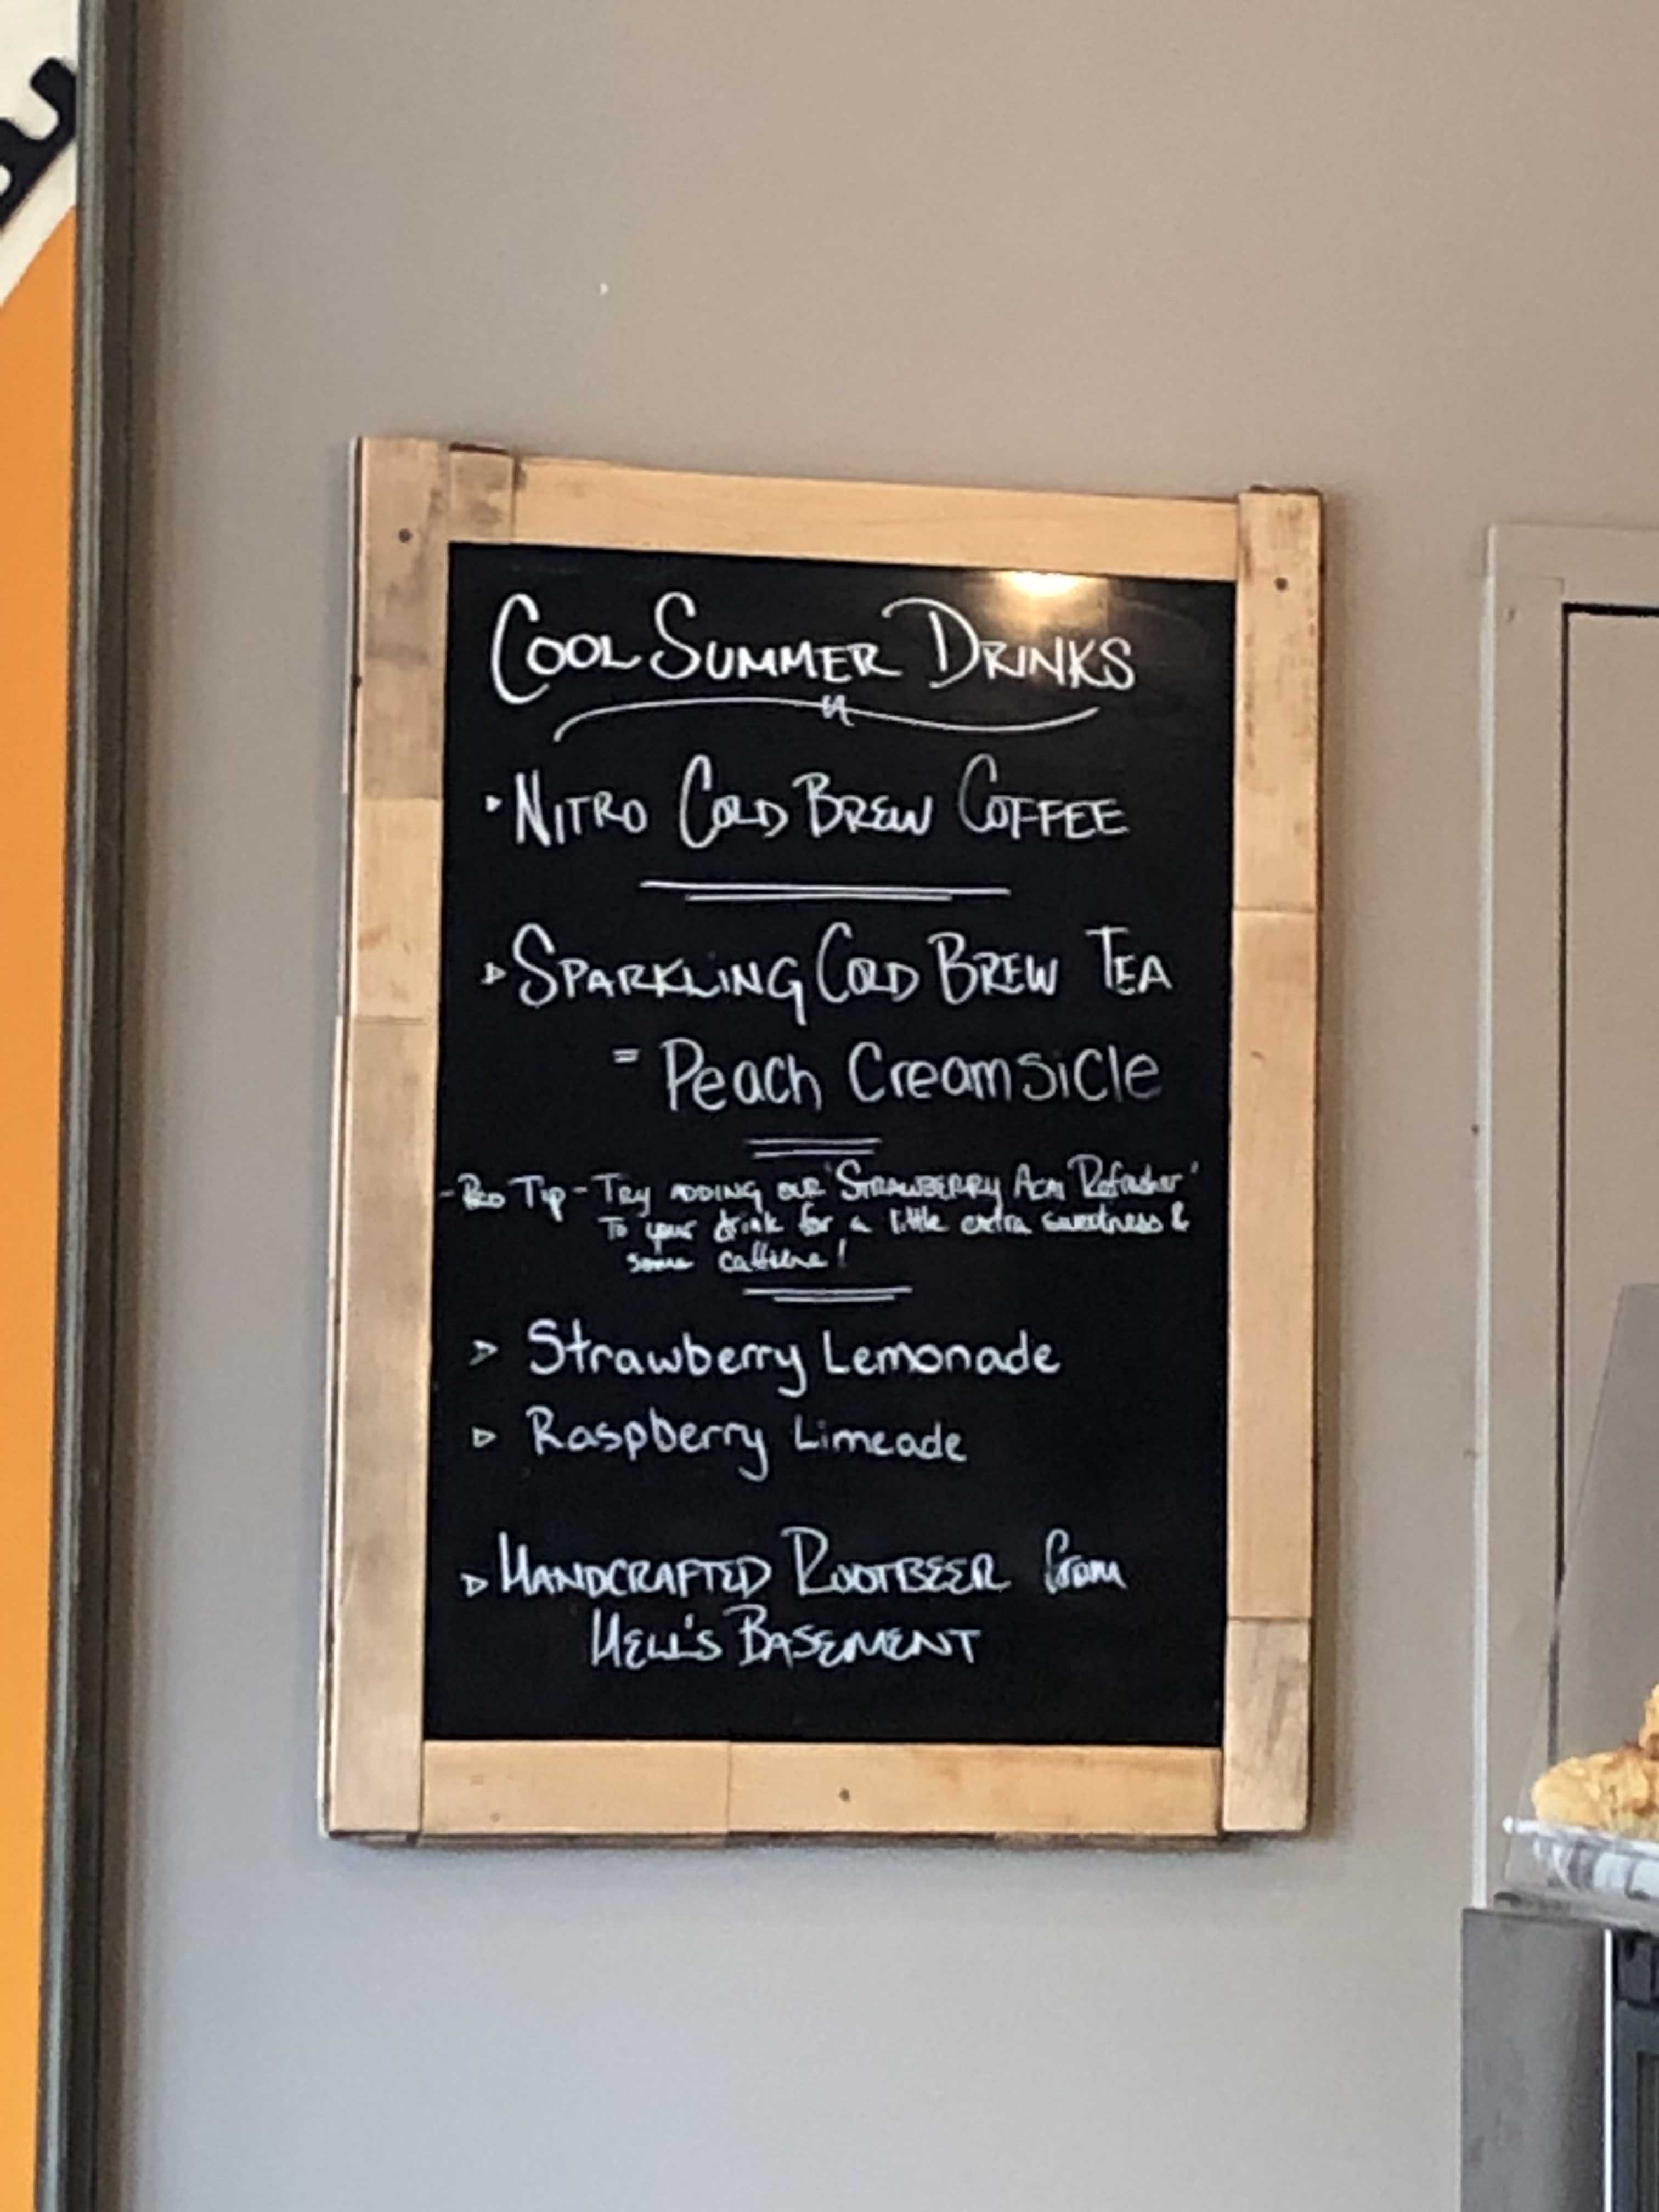 COOL SUMMER DRINKS
NITRO COLD BREW COFFEE
SPARKLING COLD BREW TEA
= Peach Creamsicle
- PRO TIP - TRY ADDING OUR 'STRAWBERRY ACAI Refresher'
To your drink for a little extra sweetness &
some caffeine!
Strawberry Lemonade
Raspberry Limeade
HANDCRAFTED ROOTBEER from
HELL'S BASEMENT